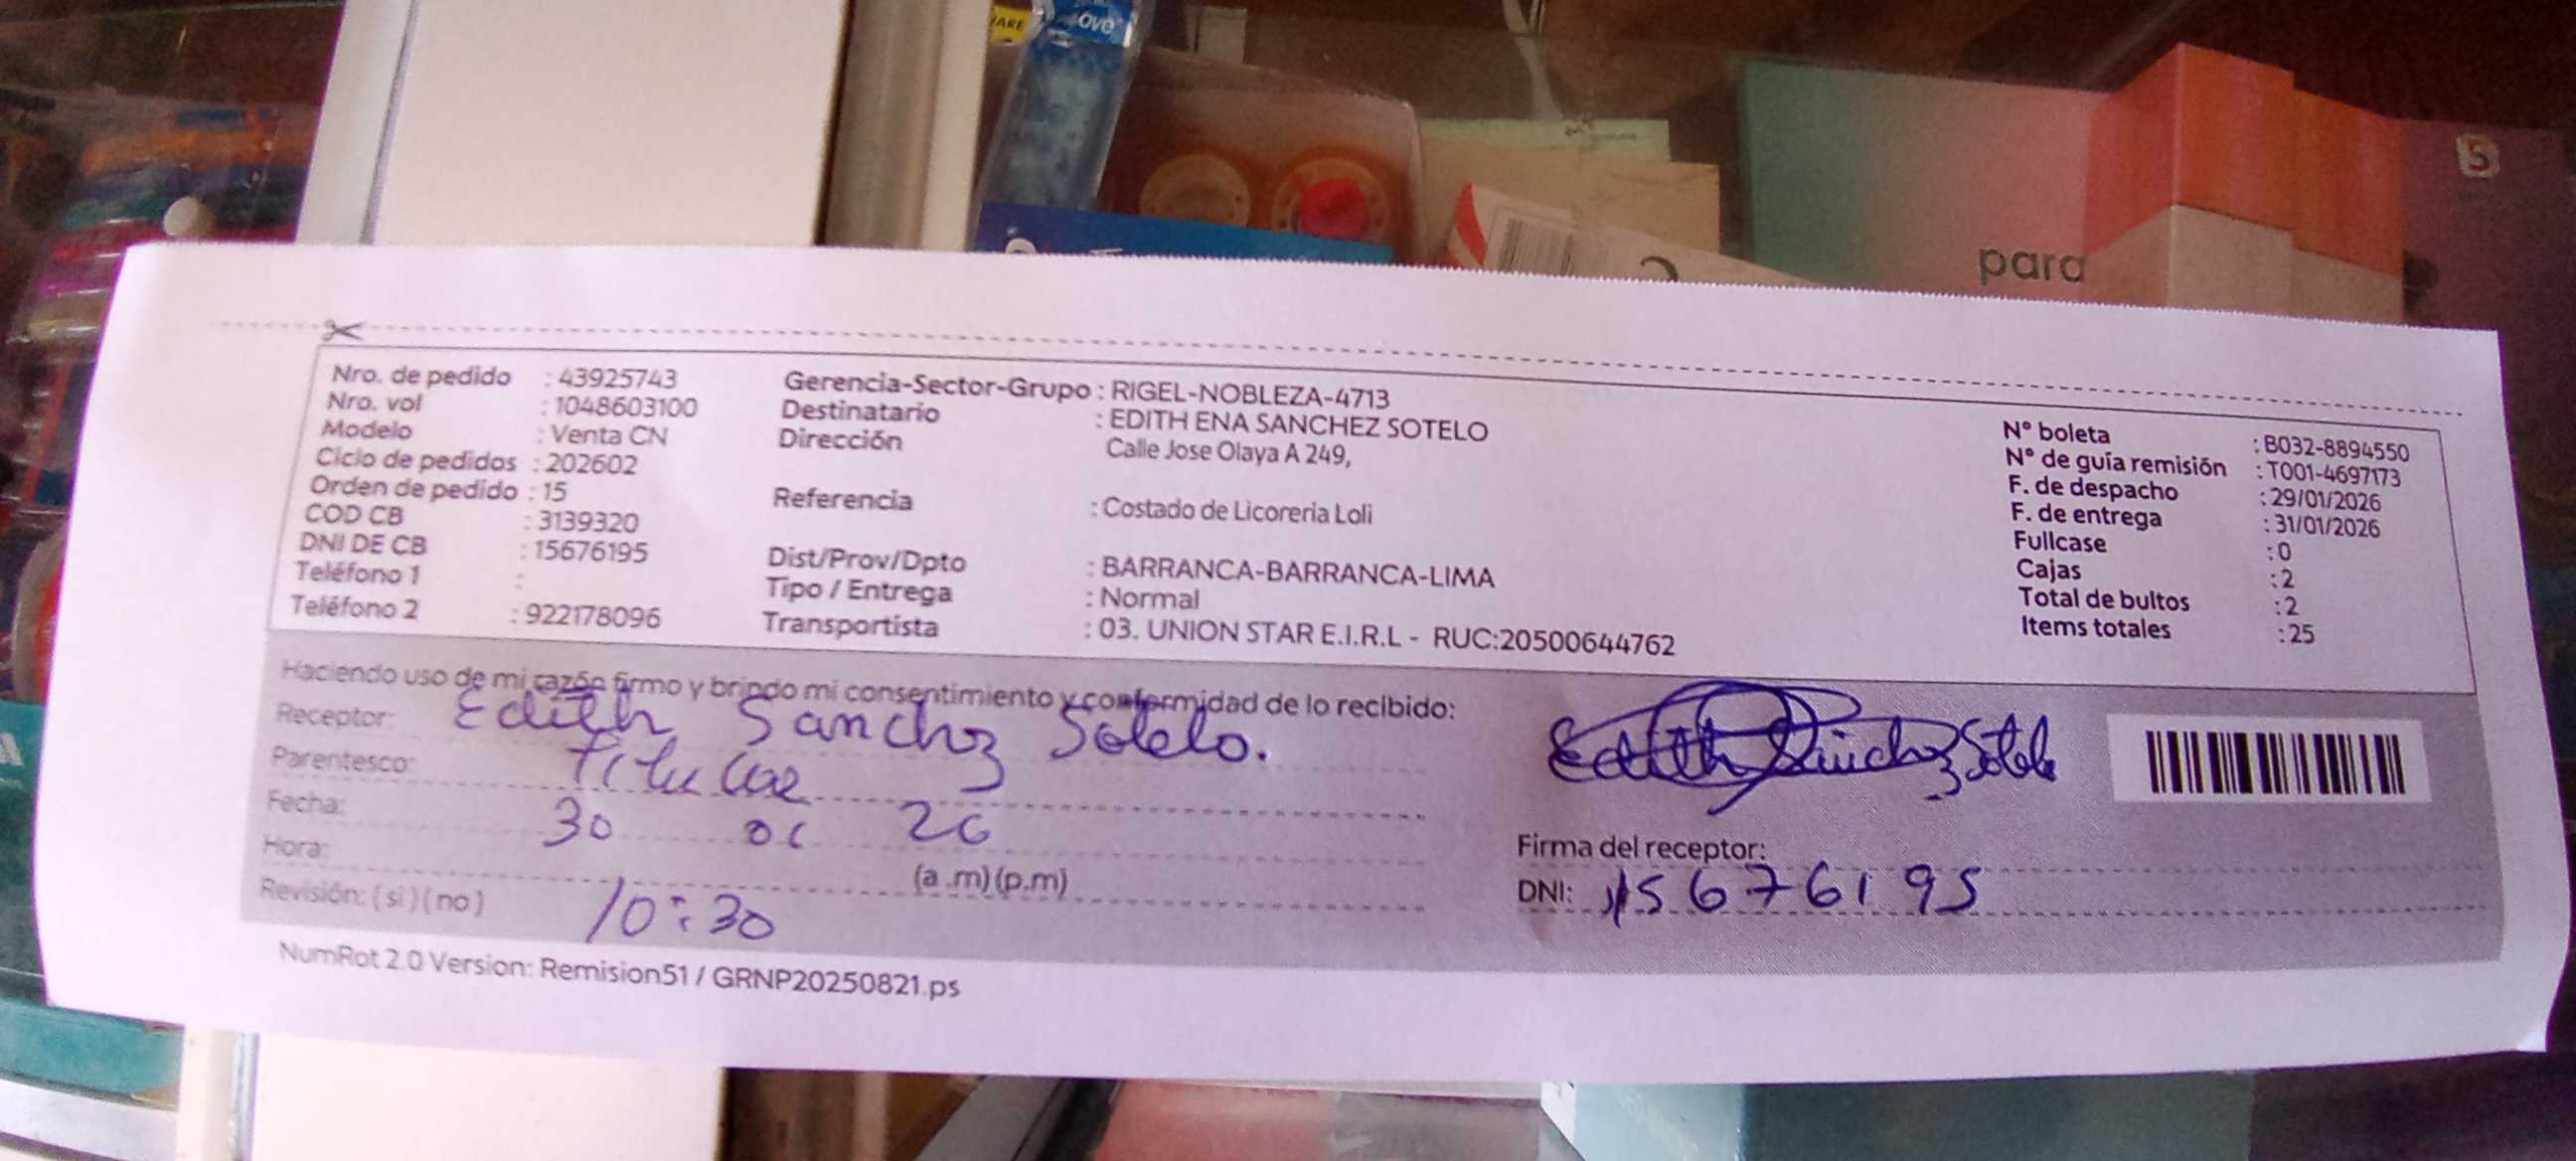 ARE
OVO
5
para
Nro. de pedido : 43925743
Nro. vol : 1048603100
Modelo : Venta CN
Ciclo de pedidos : 202602
Orden de pedido : 15
COD CB : 3139320
DNI DE CB : 15676195
Teléfono 1 :
Teléfono 2 : 922178096
Gerencia-Sector-Grupo : RIGEL-NOBLEZA-4713
Destinatario : EDITH ENA SANCHEZ SOTELO
Dirección Calle Jose Olaya A 249,
Referencia : Costado de Licoreria Loli
Dist/Prov/Dpto : BARRANCA-BARRANCA-LIMA
Tipo / Entrega : Normal
Transportista : 03. UNION STAR E.I.R.L - RUC:20500644762
N° boleta : B032-8894550
N° de guía remisión : T001-4697173
F. de despacho : 29/01/2026
F. de entrega : 31/01/2026
Fullcase : 0
Cajas : 2
Total de bultos : 2
Items totales : 25
Haciendo uso de mi razón firmo y brindo mi consentimiento y conformidad de lo recibido:
Receptor: Edith Sanchz Sotelo.
Parentesco: Titular
Fecha: 30 01 26
Hora: (a .m) (p.m)
Revisión: ( si ) ( no ) 10:30
Edith Sanchz Sotelo
Firma del receptor:
DNI: 15676195
NumRot 2.0 Version: Remision51 / GRNP20250821.ps